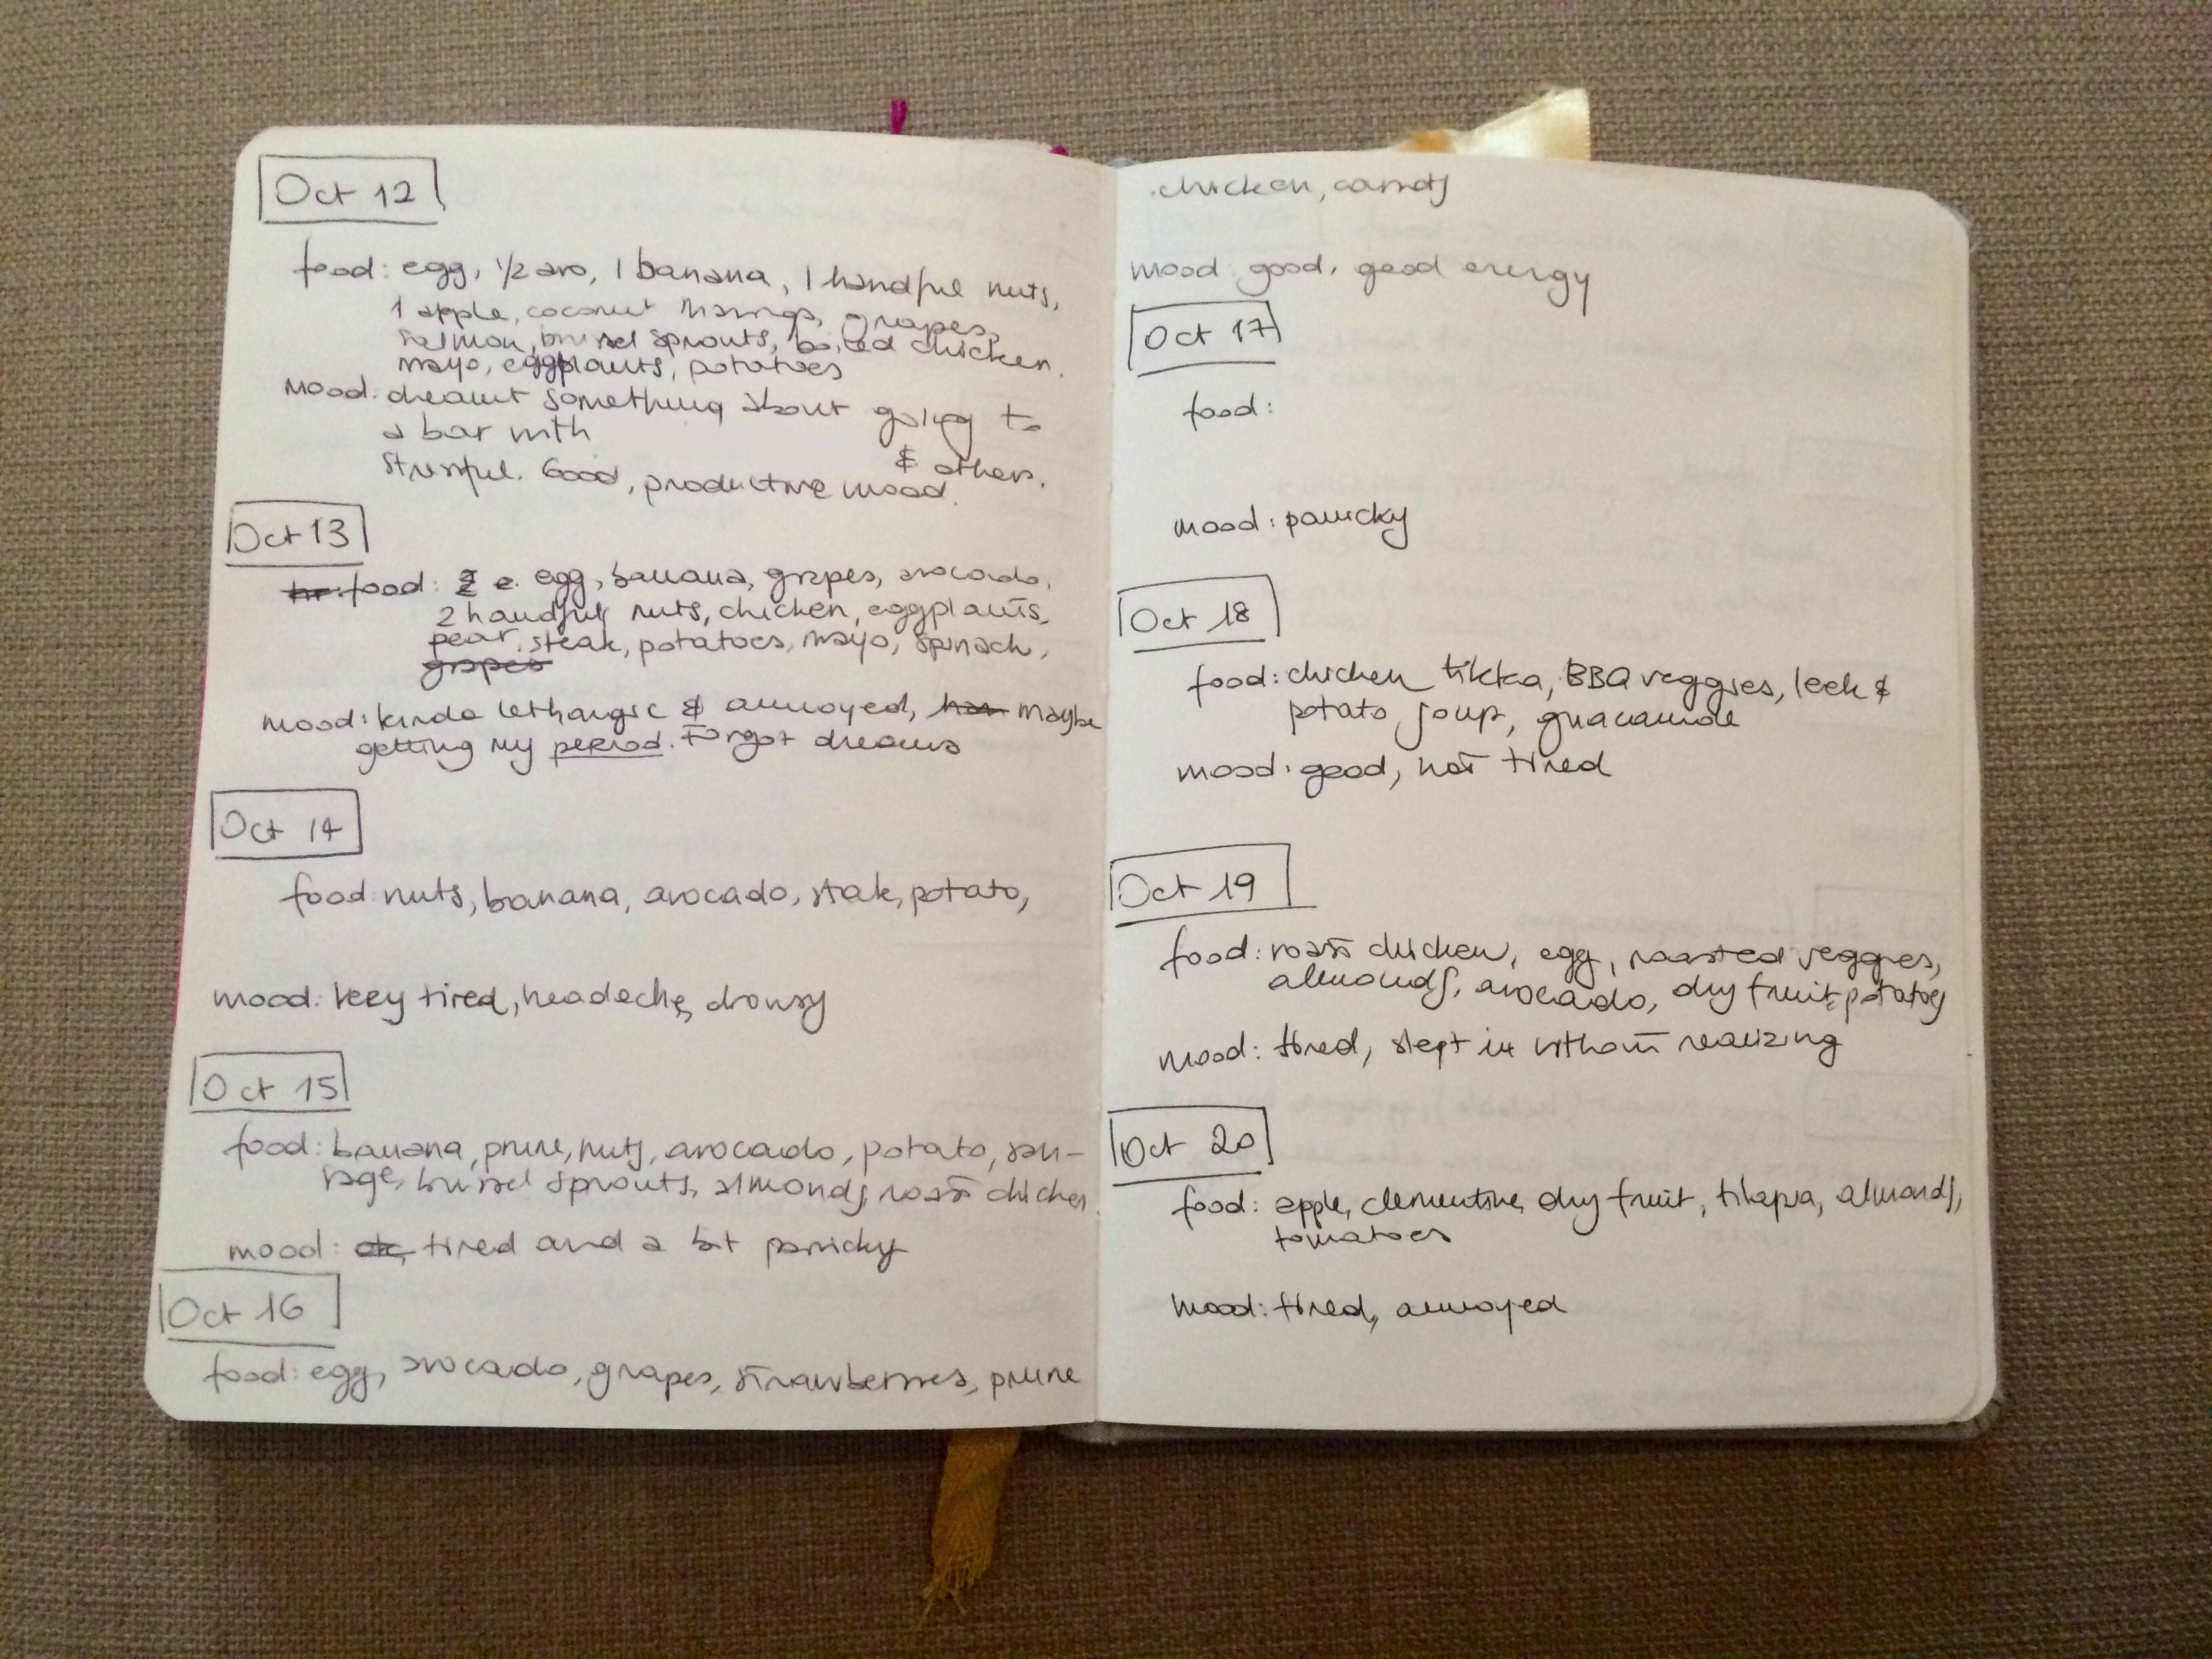 Oct 12
food: egg, 1/2 avo, 1 banana, 1 handful nuts,
1 apple, coconut shavings, grapes,
salmon, brussel sprouts, boiled chicken.
mayo, eggplants, potatoes
Mood: dreamt something about going to
a bar with
& others.
stressful. Good, productive mood.
Oct 13
food: egg, banana, grapes, avocado,
2 handfuls nuts, chicken, eggplants,
pear, steak, potatoes, mayo, spinach,
grapes
mood: kinda lethargic & annoyed, maybe
getting my period. Forgot dreams
Oct 14
food nuts, banana, avocado, steak, potato,
mood: very tired, headache, drowsy
Oct 15
food: banana, prune, nuts, avocado, potato, sau-
sage, brussel sprouts, almonds, roast chicken.
mood: ok, tired and a bit panicky
Oct 16
food: egg, avocado, grapes, strawberries, prune
chicken, carrots
mood good, good energy
Oct 17
food:
mood: panicky
Oct 18
food: chicken tikka, BBQ veggies, leek &
potato soup, guacamole
mood: good, not tired
Oct 19
food: roast chicken, egg, roasted veggies,
almonds, avocado, dry fruit, potatoes
mood: tired, slept in without realizing
Oct 20
food: apple, clementine, dry fruit, tilapia, almonds,
tomatoes
mood: tired, annoyed